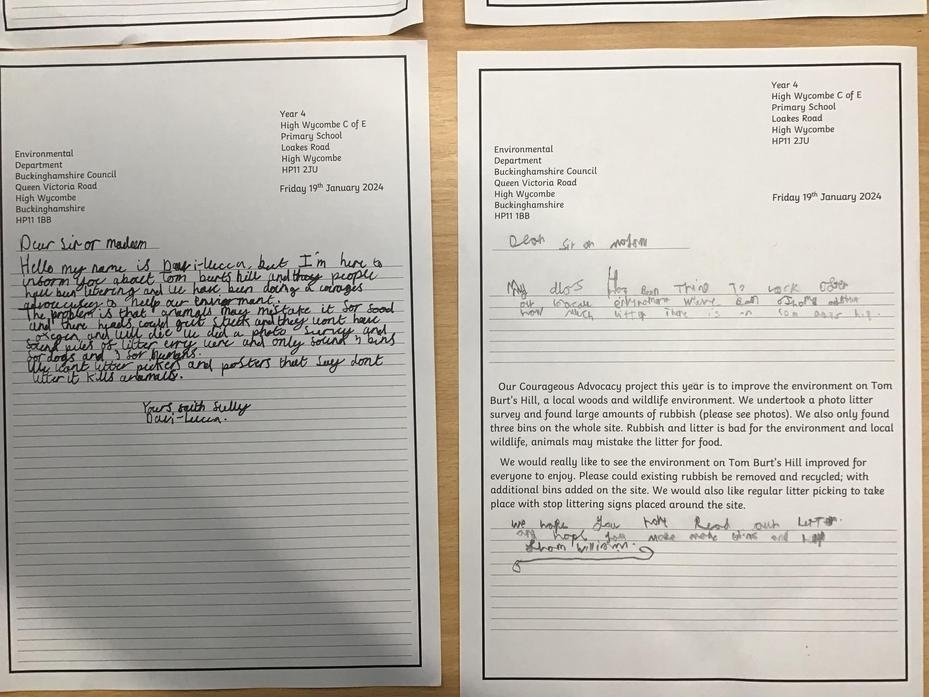 Year 4
High Wycombe C of E
Primary School
Loakes Road
High Wycombe
HP11 2JU
Environmental
Department
Buckinghamshire Council
Queen Victoria Road
High Wycombe
Buckinghamshire
HP11 1BB
Friday 19th January 2024
Dear Sir or madeem
Hello my name is Davi-lucca, but I'm here to
inform you about Tom burts hill and they people
have bun litering and we have been doing a corages
advocasey to help our enviorment.
The problem is that anamals may mistake it for food
and there heads could get stuck and they wont have
oxegen and will die we did a photo survey and
found piles of litter evry were and only found
for dogs and 3 for humans.
We want litter pickers and posters that say dont
litter it kills anamals.
Yours faith fully
Davi-Lucca.
Year 4
High Wycombe C of E
Primary School
Loakes Road
High Wycombe
HP11 2JU
Environmental
Department
Buckinghamshire Council
Queen Victoria Road
High Wycombe
Buckinghamshire
HP11 1BB
Friday 19th January 2024
Dear sir or
My Has Been to
our
how much litter there is
Our Courageous Advocacy project this year is to improve the environment on Tom
Burt's Hill, a local woods and wildlife environment. We undertook a photo litter
survey and found large amounts of rubbish (please see photos). We also only found
three bins on the whole site. Rubbish and litter is bad for the environment and local
wildlife, animals may mistake the litter for food.
We would really like to see the environment on Tom Burt's Hill improved for
everyone to enjoy. Please could existing rubbish be removed and recycled; with
additional bins added on the site. We would also like regular litter picking to take
place with stop littering signs placed around the site.
We hope you Read our
and hope you make more bins and